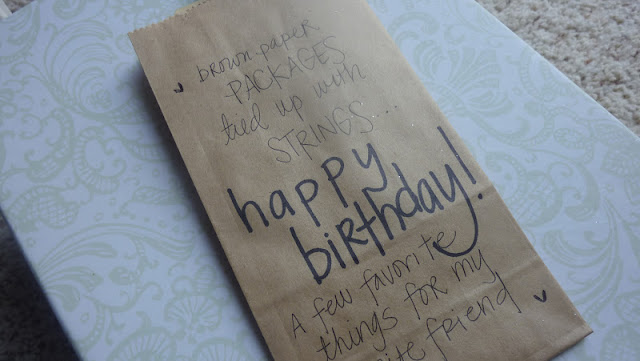 brown paper
PACKAGES
tied up with
STRINGS...
happy
birthday!
A few favorite
things for my
friend